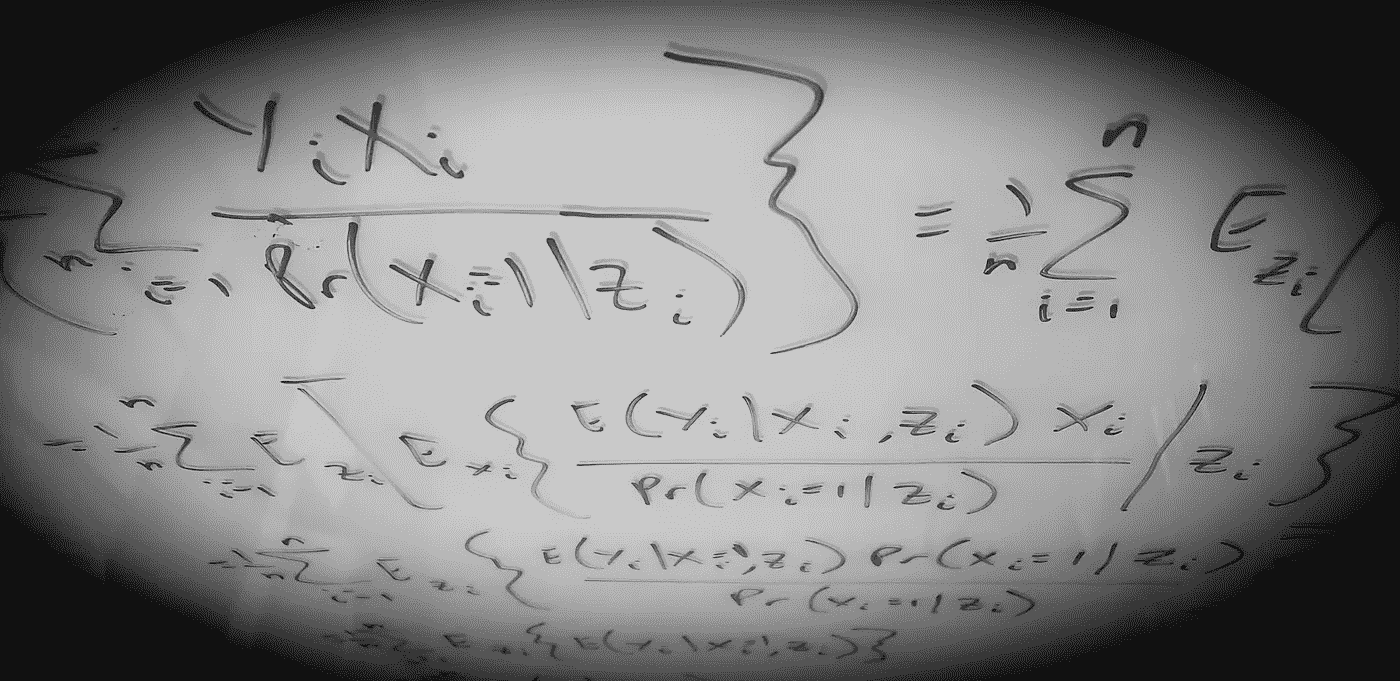 ∑ n i=1 Y_i X_i / Pr(X_i=1|Z_i) } = 1/n ∑_{i=1}^{n} E_{Z_i} [
= 1/n ∑_{i=1}^{n} E_{Z_i} [ E_{X_i} { E(Y_i|X_i,Z_i) X_i / Pr(X_i=1|Z_i) / Z_i } ]
= 1/n ∑_{i=1}^{n} E_{Z_i} { E(Y_i|X_i=1,Z_i) Pr(X_i=1|Z_i) / Pr(X_i=1|Z_i)
E { E(Y_i|X_i=1,Z_i) }